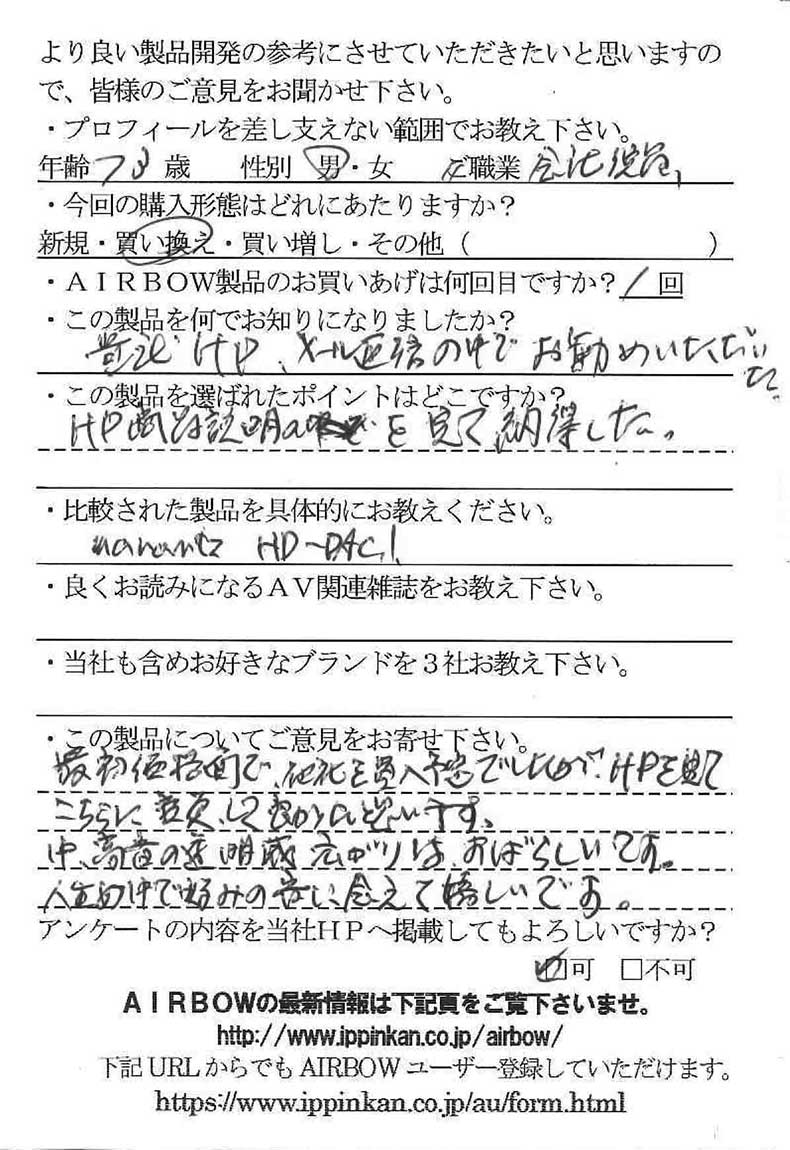 より良い製品開発の参考にさせていただきたいと思いますの
で、皆様のご意見をお聞かせ下さい。
・プロフィールを差し支えない範囲でお教え下さい。
年齢 73 歳 性別 男・女 ご職業 会社役員
・今回の購入形態はどれにあたりますか?
新規・買い換え・買い増し・その他( )
・AIRBOW製品のお買いあげは何回目ですか? 1 回
・この製品を何でお知りになりましたか?
貴社HP、メール返信の中でお勧めいただいた。
・この製品を選ばれたポイントはどこですか?
HP商品説明 を見て納得した。
・比較された製品を具体的にお教えください。
marantz HD-DAC1
・良くお読みになるAV関連雑誌をお教え下さい。
・当社も含めお好きなブランドを3社お教え下さい。
・この製品についてご意見をお寄せ下さい。
最初価格面で、他社を購入予定でしたが、HPを見て
こちらに変更して良かったと思います。
中、高音の透明感、広がりは、すばらしいです。
人生の中で好みの音に会えて嬉しいです。
アンケートの内容を当社HPへ掲載してもよろしいですか?
☑可 □不可
AIRBOWの最新情報は下記頁をご覧下さいませ。
http://www.ippinkan.co.jp/airbow/
下記URLからでもAIRBOWユーザー登録していただけます。
https://www.ippinkan.co.jp/au/form.html